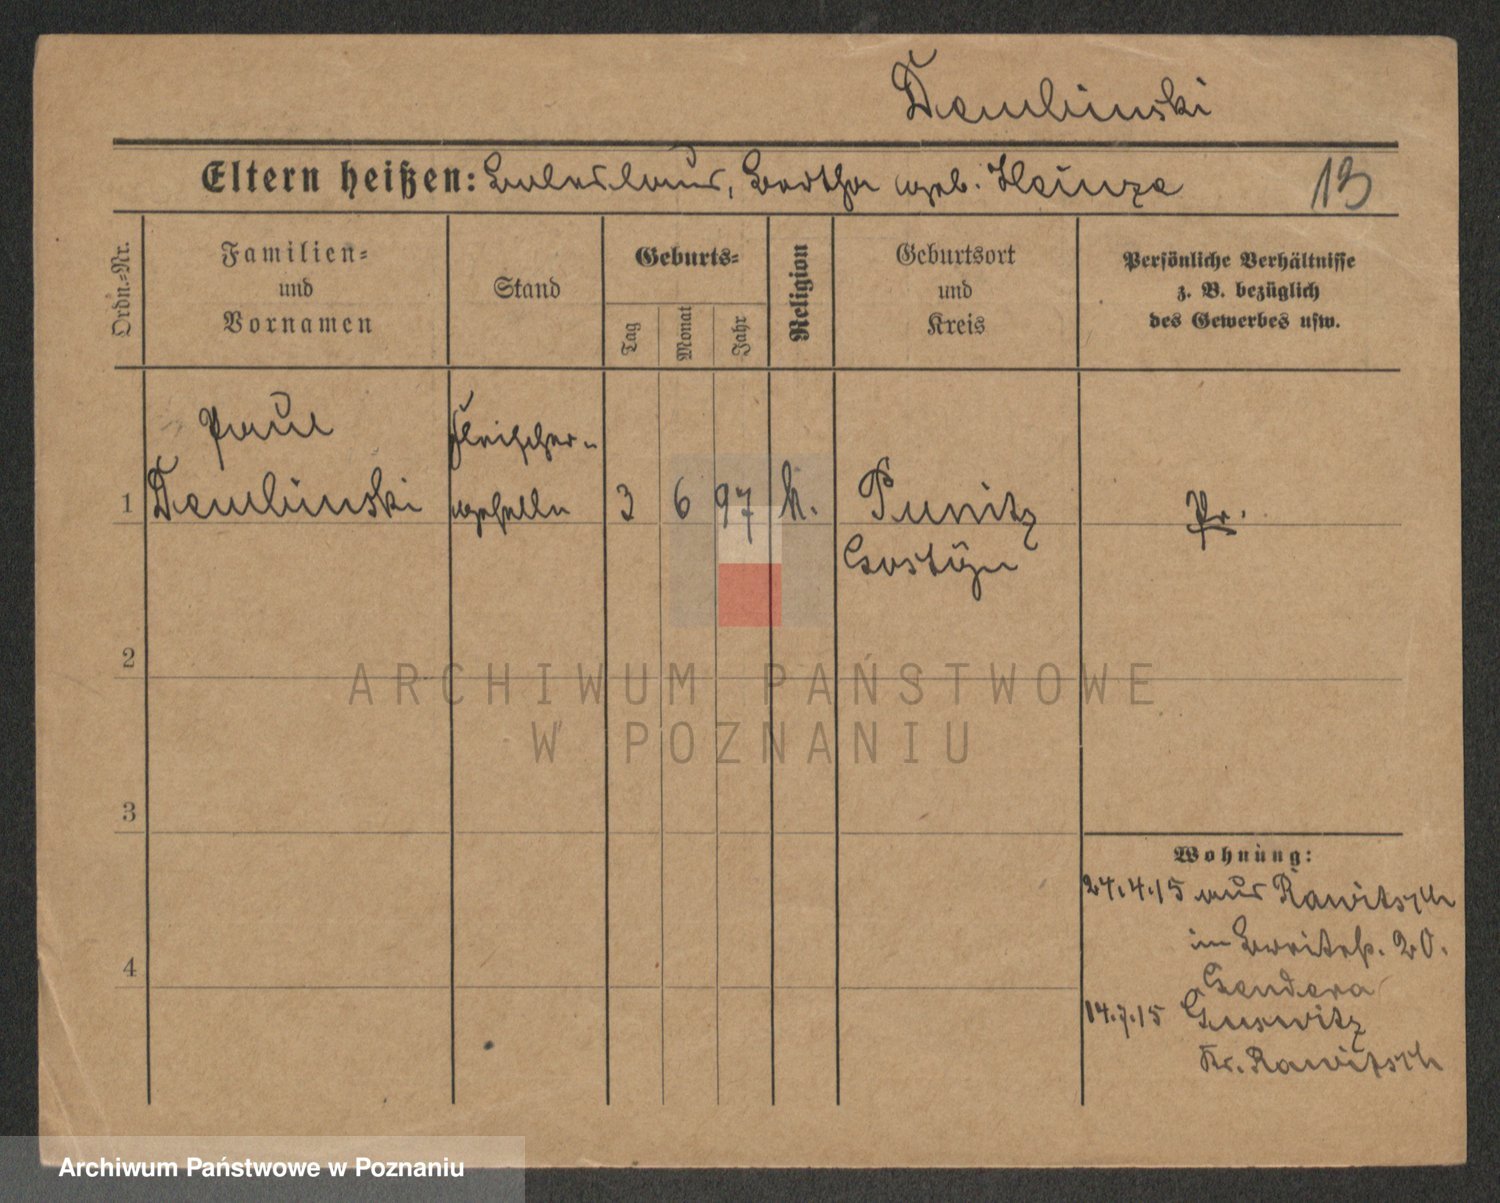 Dembinski
Eltern heißen: Boleslaus, Bertha geb. Heinze
13
Ordn.-Nr.
Familien-
und
Vornamen
Stand
Geburts-
Tag
Monat
Jahr
Religion
Geburtsort
und
Kreis
Persönliche Verhältnisse
z. B. bezüglich
des Gewerbes usw.
Paul
Dembinski
Fleischer-
geselle
1
3 6 97 k.
Punitz
Gostyn
Pr.
2
3
4
Wohnung:
24.4.15 aus Rawitsch
im Breitestr. 20.
Gendera
14.7.15
Kr. Rawitsch
ARCHIWUM PAŃSTWOWE
W POZNANIU
Archiwum Państwowe w Poznaniu